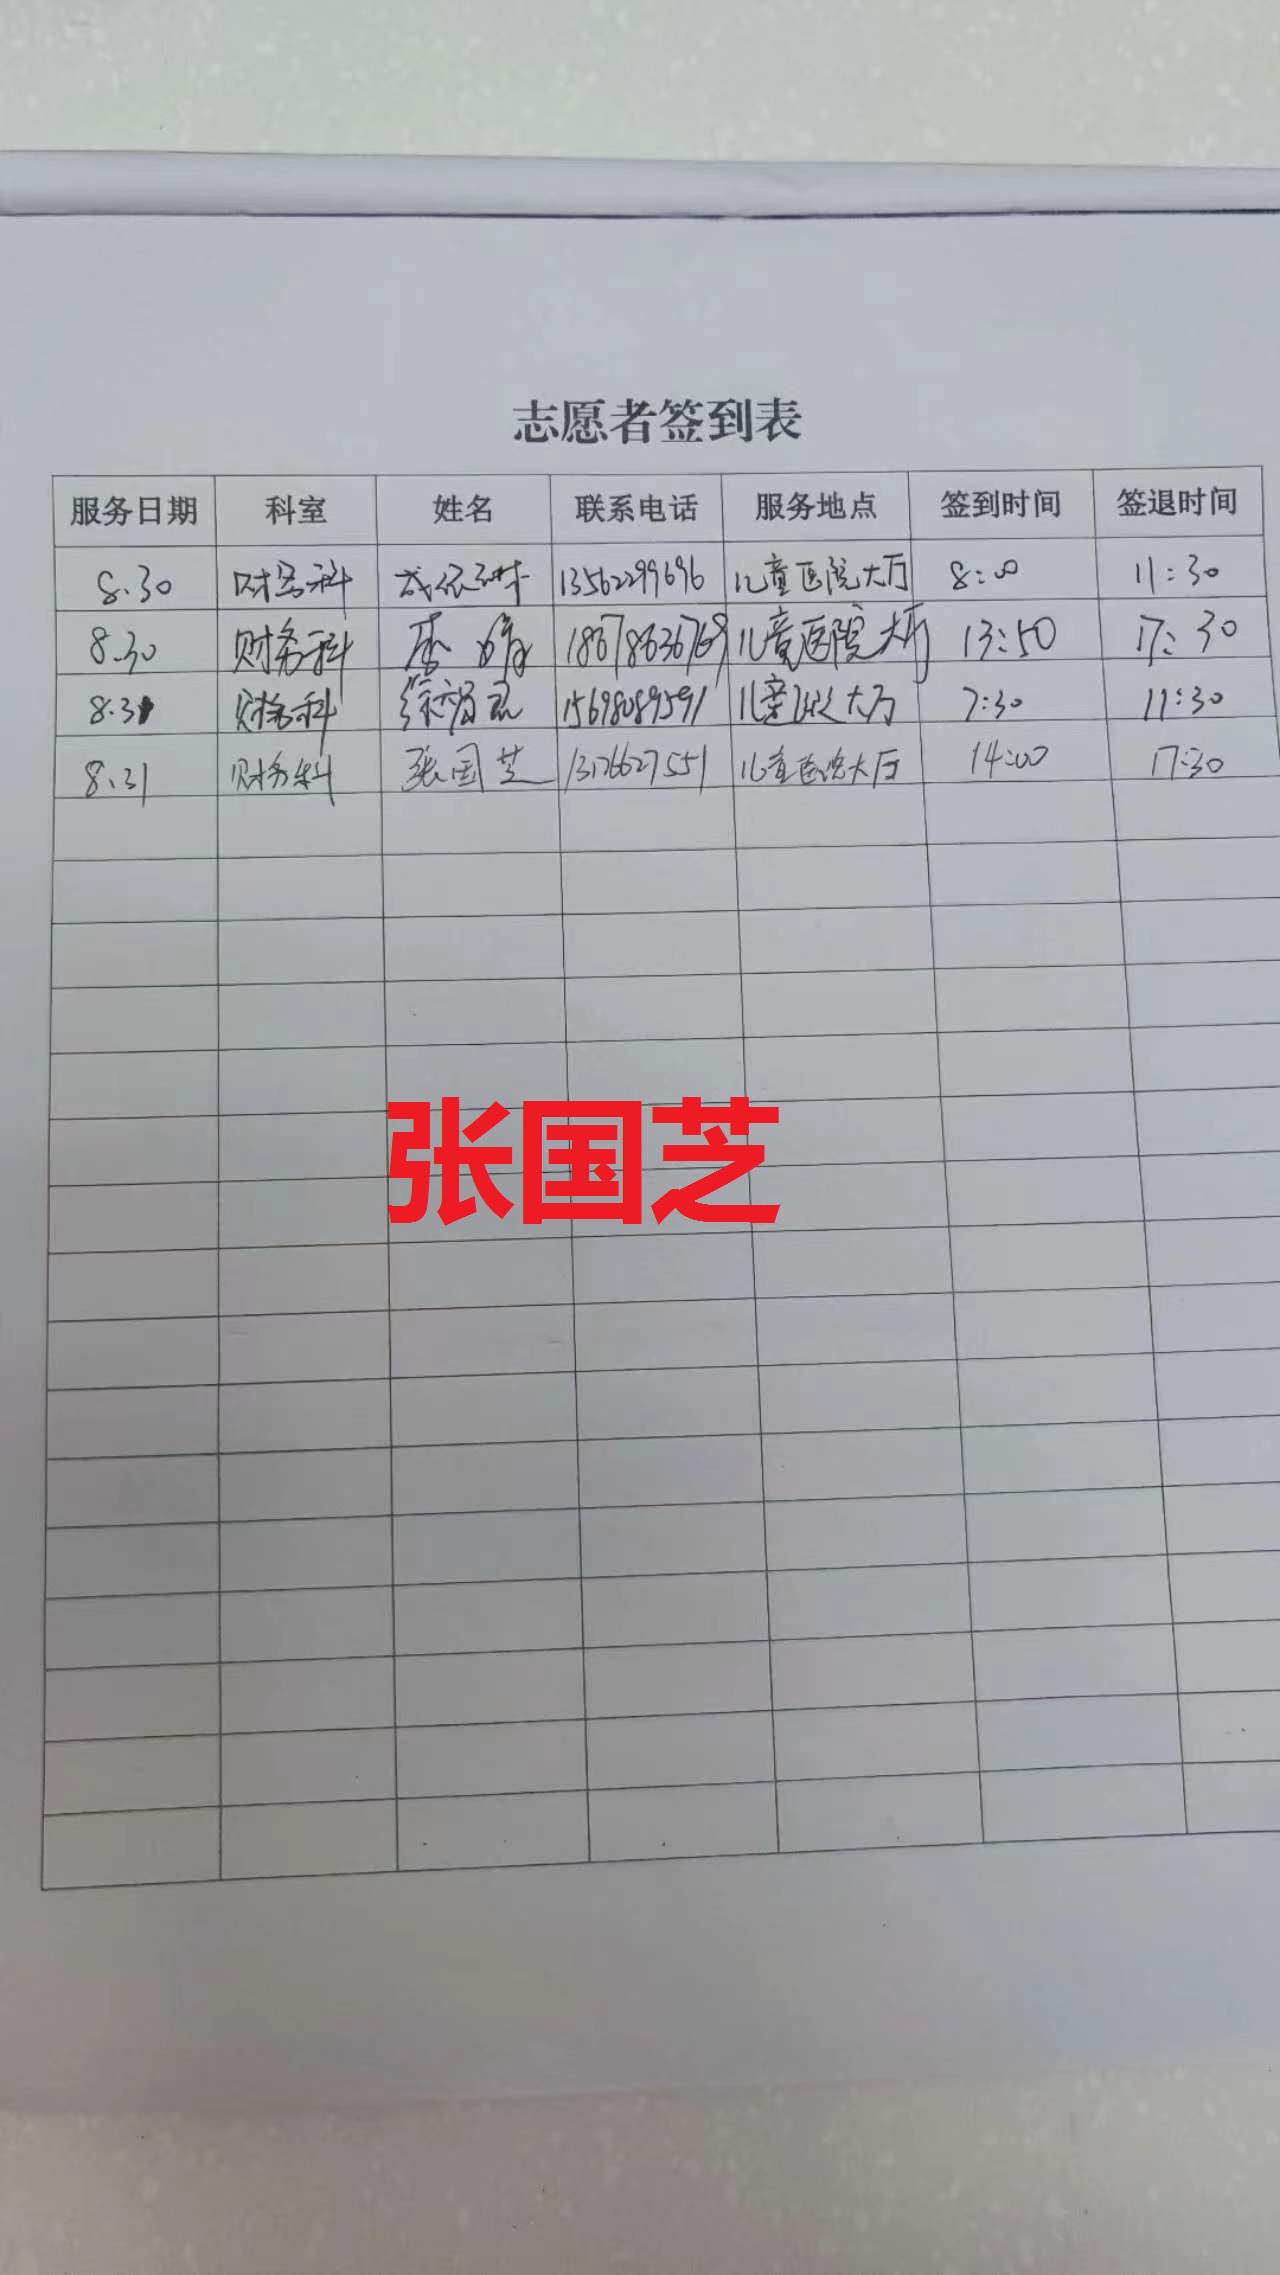 志愿者签到表
服务日期 科室 姓名 联系电话 服务地点 签到时间 签退时间
8.30 财务科 13562299696 儿童医院大厅 8:00 11:30
8.30 财务科 李婧 18678636769 儿童医院大厅 13:50 17:30
8.31 财务科 15698089591 儿童 大厅 7:30 11:30
8.31 财务科 张国芝 13176627551 儿童医院大厅 14:00 17:30
张国芝